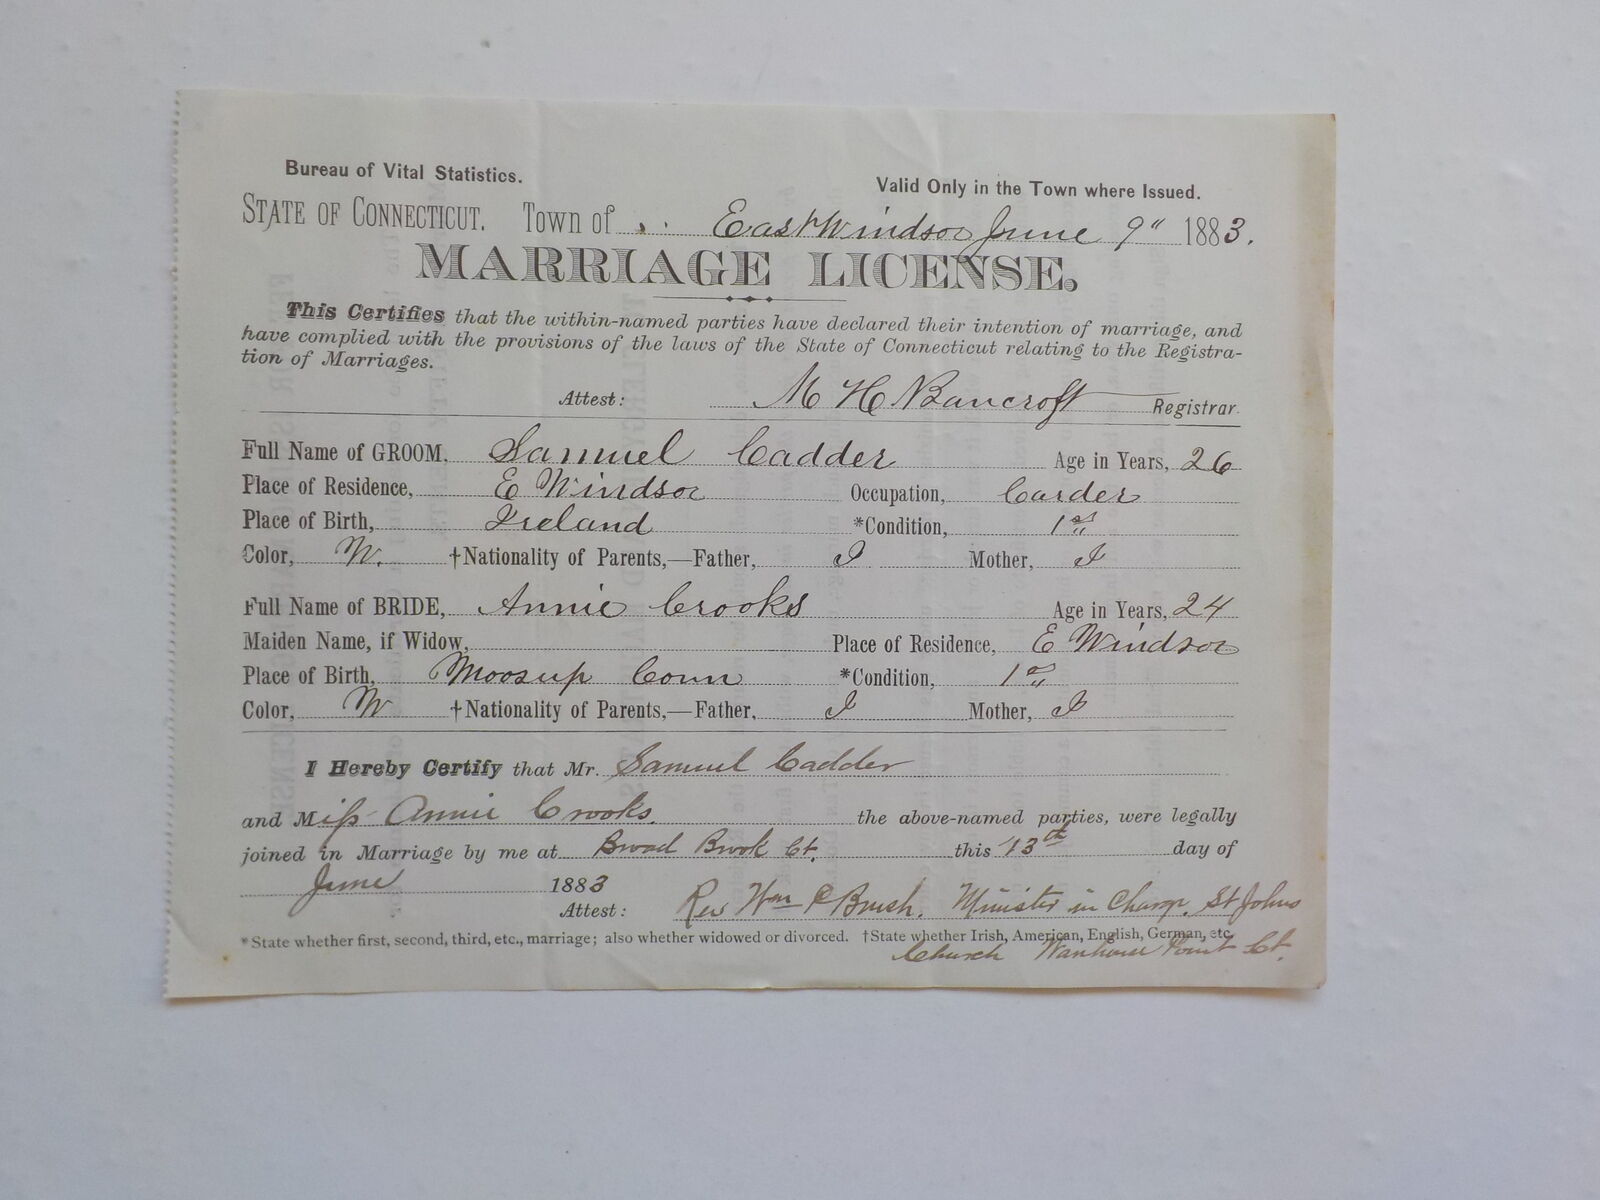 Bureau of Vital Statistics. Valid Only in the Town where Issued.
STATE OF CONNECTICUT. Town of East Windsor June 9" 1883.
MARRIAGE LICENSE.
This Certifies that the within-named parties have declared their intention of marriage, and
have complied with the provisions of the laws of the State of Connecticut relating to the Registra-
tion of Marriages.
Attest: M H Bancroft Registrar.
Full Name of GROOM, Samuel Cadder Age in Years, 26
Place of Residence, E Windsor Occupation, Carder
Place of Birth, Ireland *Condition, 1st
Color, W. †Nationality of Parents,—Father, I Mother, I
Full Name of BRIDE, Annie Crooks Age in Years, 24
Maiden Name, if Widow, Place of Residence, E Windsor
Place of Birth, Moosup Conn *Condition, 1st
Color, W †Nationality of Parents,—Father, I Mother, I
I Hereby Certify that Mr. Samuel Cadder
and Miss Annie Crooks. the above-named parties, were legally
joined in Marriage by me at Broad Brook Ct. this 13th day of
June 1883
Attest: Rev Wm Brush. Minister in Charge. St Johns
*State whether first, second, third, etc., marriage; also whether widowed or divorced. †State whether Irish, American, English, German, etc.
Church Warehouse Point Ct.